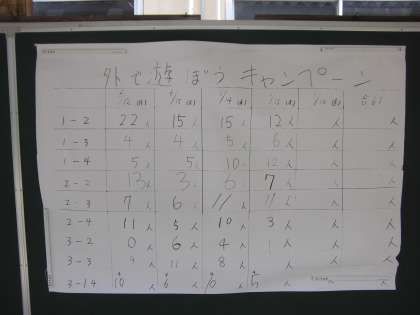 外で遊ぼうキャンペーン
1-2 22人 15人 15人 12人 人 人
1-3 4人 4人 5人 6人 人 人
1-4 5人 5人 10人 12人 人
2-2 13人 3人 6人 7人 人
2-3 7人 6人 11人 11人 人 人
2-4 11人 5人 10人 3人 人 人
3-2 0人 6人 4人 人 人 人
3-3 9人 11人 8人 人 人 人
3-14 10人 6人 10人 5人 人 人